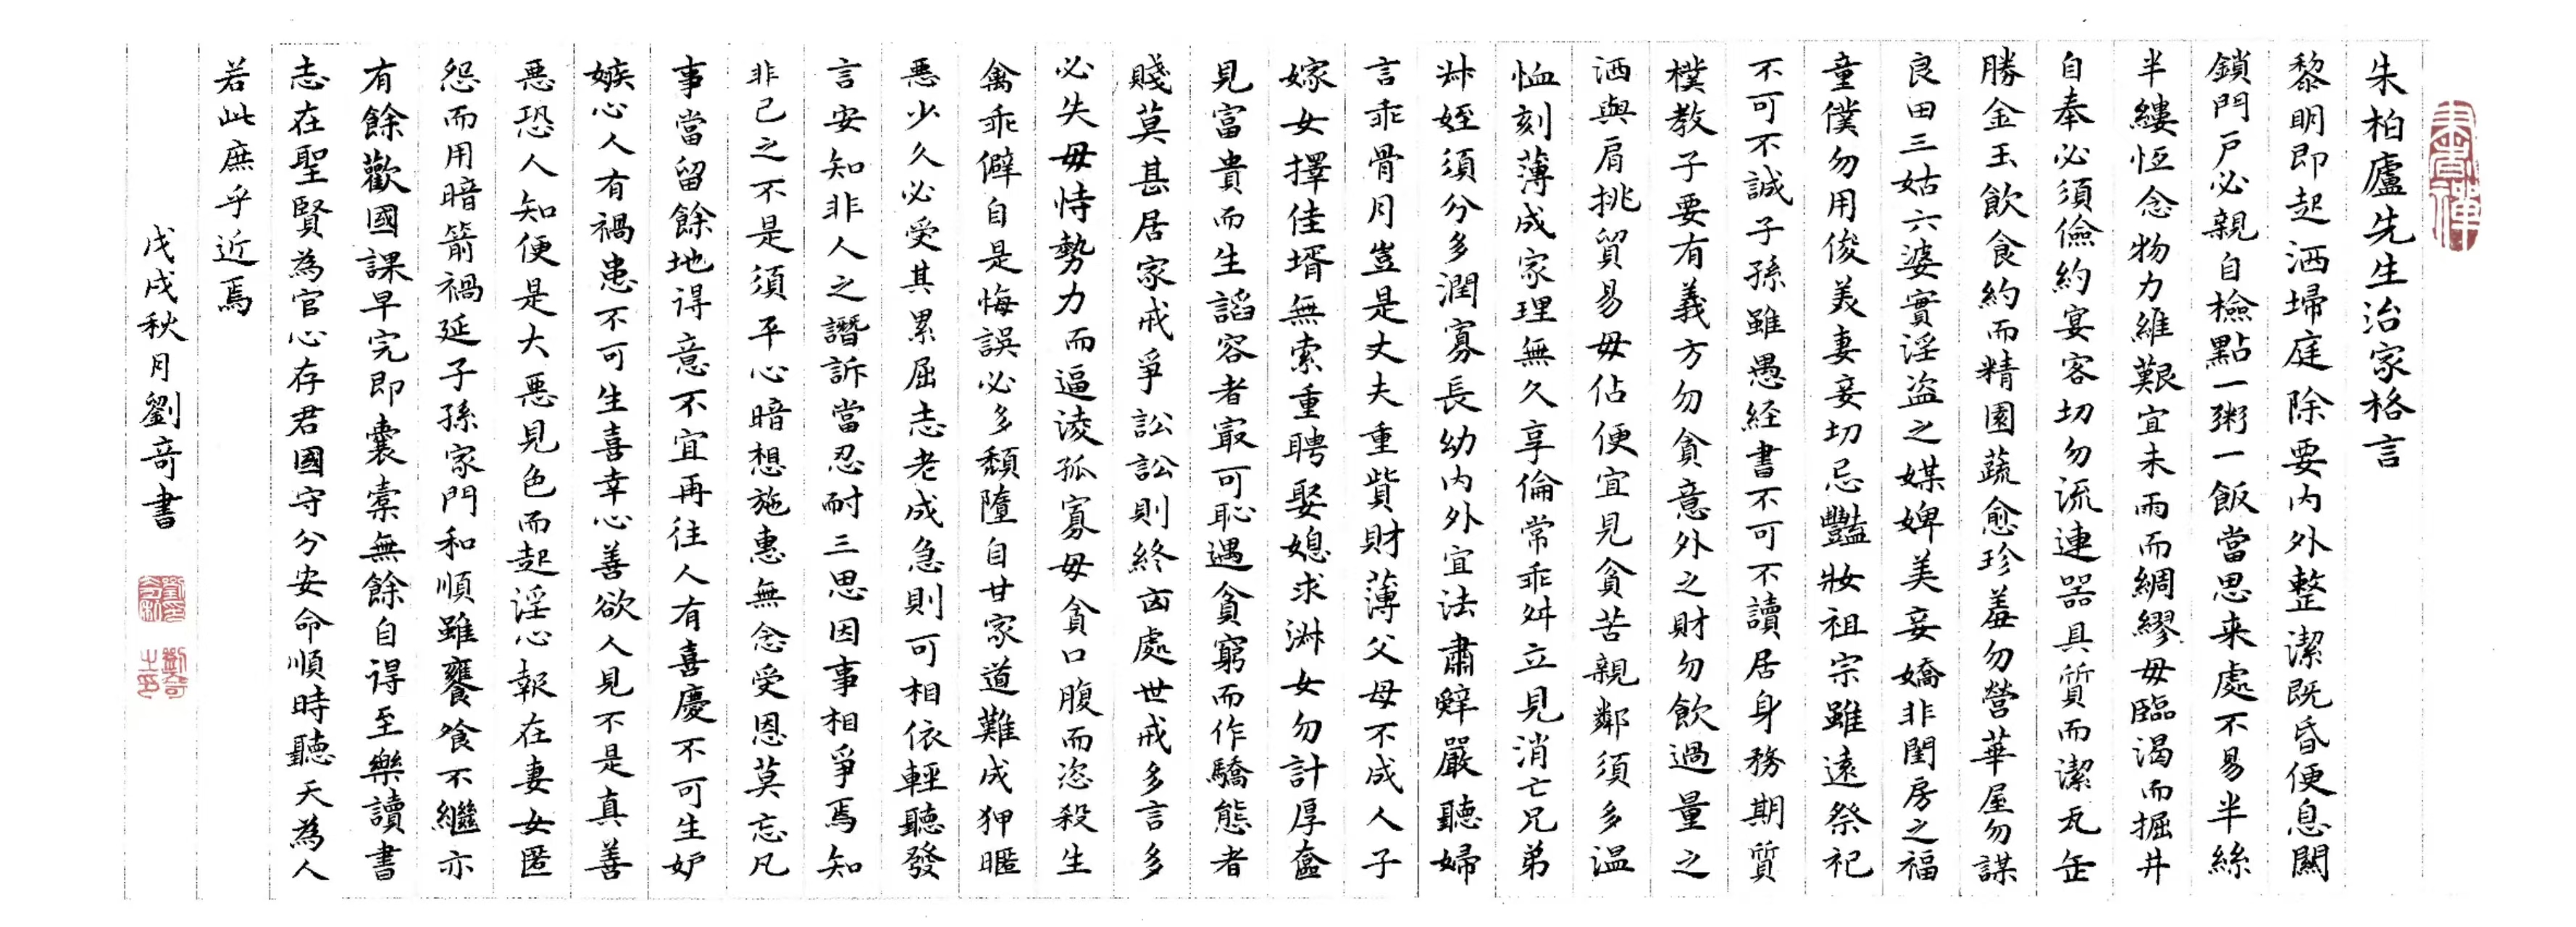 朱柏廬先生治家格言
黎明即起洒埽庭除要内外整潔既昏便息關
鎖門戶必親自檢點一粥一飯當思来處不易半絲
半縷恆念物力維艱宜未雨而綢繆毋臨渴而掘井
自奉必須儉約宴客切勿流連器具質而潔瓦缶
勝金玉飲食約而精園蔬愈珍羞勿營華屋勿謀
良田三姑六婆實淫盗之媒婢美妾嬌非閨房之福
童僕勿用俊美妻妾切忌豔妝祖宗雖遠祭祀
不可不誠子孫雖愚經書不可不讀居身務期質
樸教子要有義方勿貪意外之財勿飲過量之
洒與肩挑貿易毋佔便宜見貧苦親鄰須多温
恤刻薄成家理無久享倫常乖舛立見消亡兄弟
姪須分多潤寡長幼内外宜法肅辭嚴聽婦
言乖骨月豈是丈夫重貲財薄父母不成人子
嫁女擇佳壻無索重聘娶媳求淋女勿計厚奩
見富貴而生諂容者冣可恥遇貧窮而作驕態者
賤莫甚居家戒爭訟訟則終凶處世戒多言多
必失毋恃勢力而逼淩孤寡毋貪口腹而恣殺生
禽乖僻自是悔誤必多頽隳自甘家道難成狎暱
惡少久必受其累屈志老成急則可相依輕聽發
言安知非人之譖訴當忍耐三思因事相爭焉知
非己之不是須平心暗想施惠無念受恩莫忘凡
事當留餘地得意不宜再往人有喜慶不可生妒
嫉心人有禍患不可生喜幸心善欲人見不是真善
惡恐人知便是大惡見色而起淫心報在妻女匿
怨而用暗箭禍延子孫家門和順雖饔飧不繼亦
有餘歡國課早完即囊橐無餘自得至樂讀書
志在聖賢為官心存君國守分安命順時聽天為人
若此庶乎近焉
戊戌秋月劉奇書